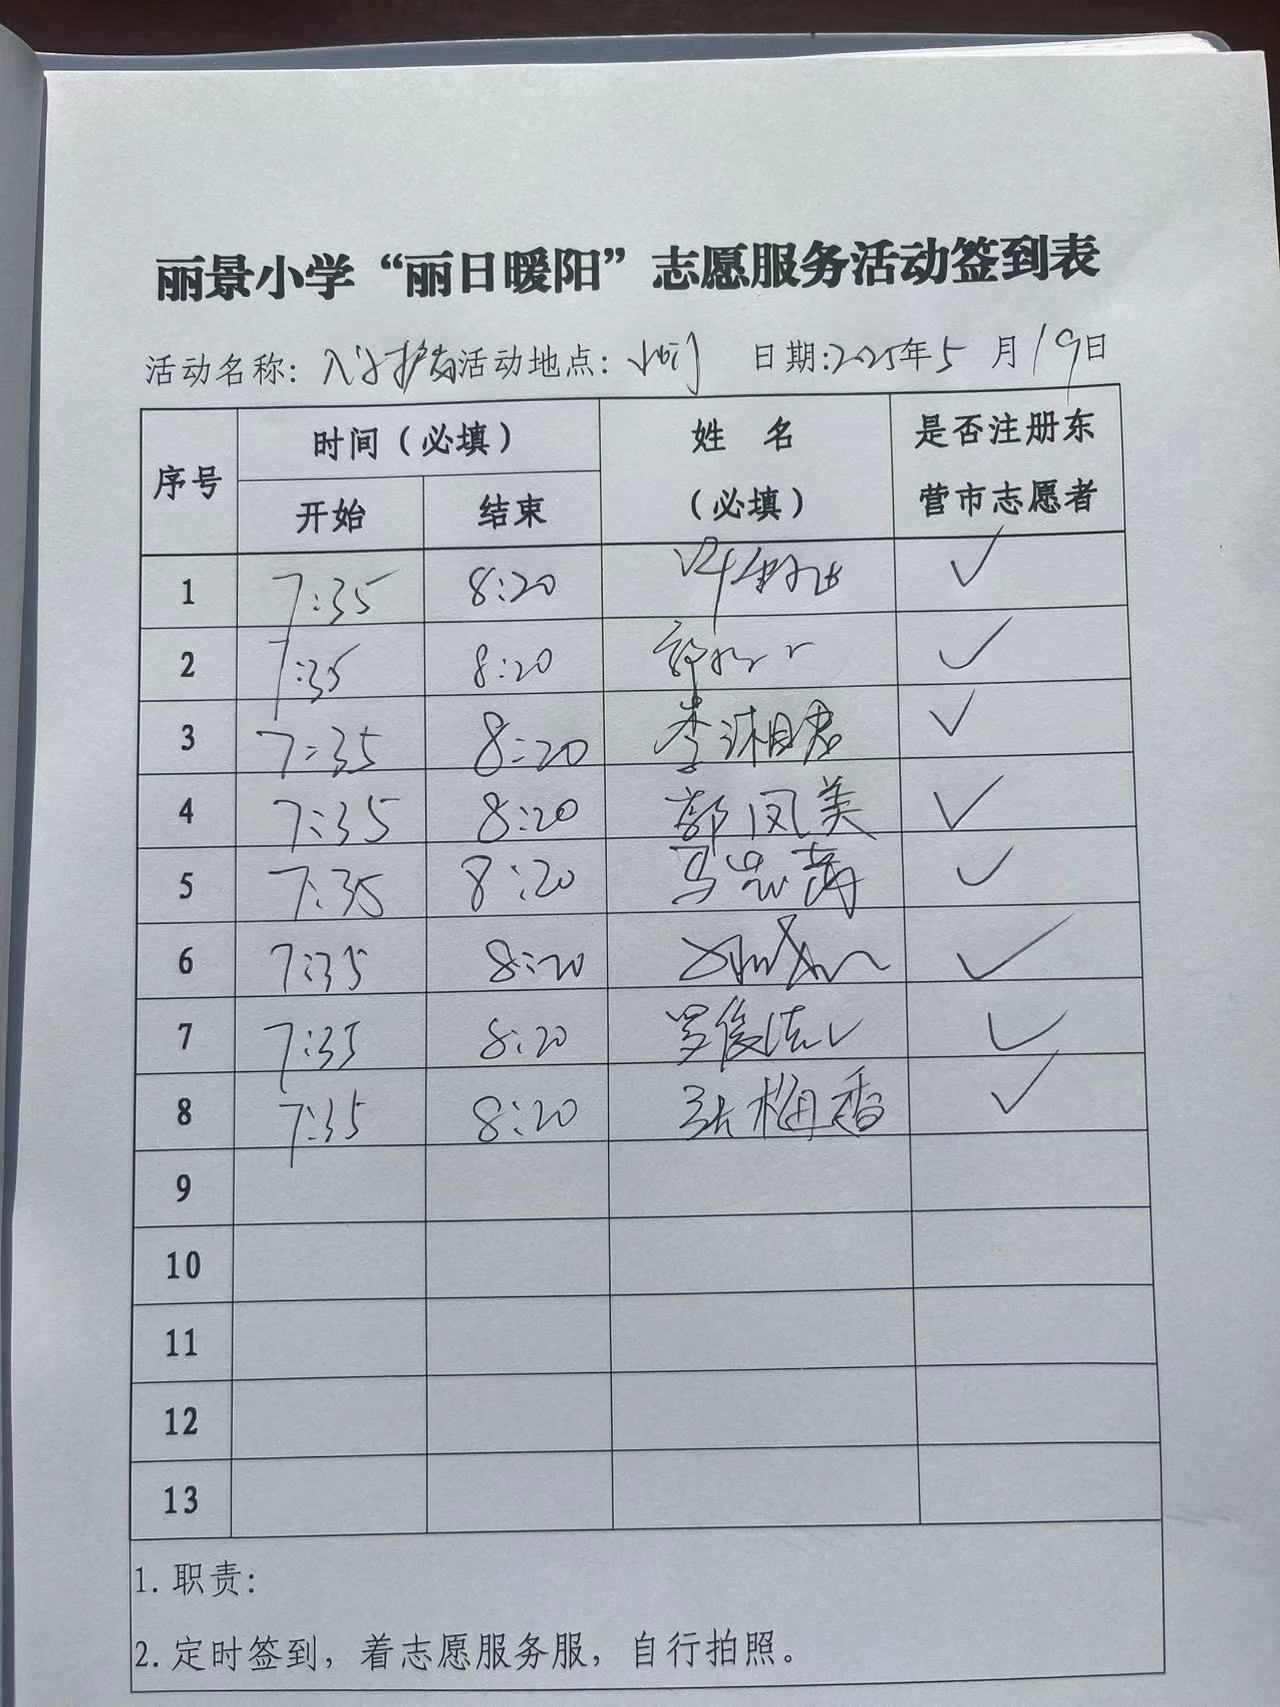 丽景小学“丽日暖阳”志愿服务活动签到表
活动名称: 入学护岗 活动地点: 小西门 日期: 2025年5月19日
序号 时间（必填） 姓名（必填） 是否注册东营市志愿者
开始 结束
1 7:35 8:20 ✓
2 7:35 8:20 ✓
3 7:35 8:20 李淑君 ✓
4 7:35 8:20 郭凤美 ✓
5 7:35 8:20 ✓
6 7:35 8:20 ✓
7 7:35 8:20 ✓
8 7:35 8:20 张梅香 ✓
9
10
11
12
13
1. 职责:
2. 定时签到，着志愿服务服，自行拍照。